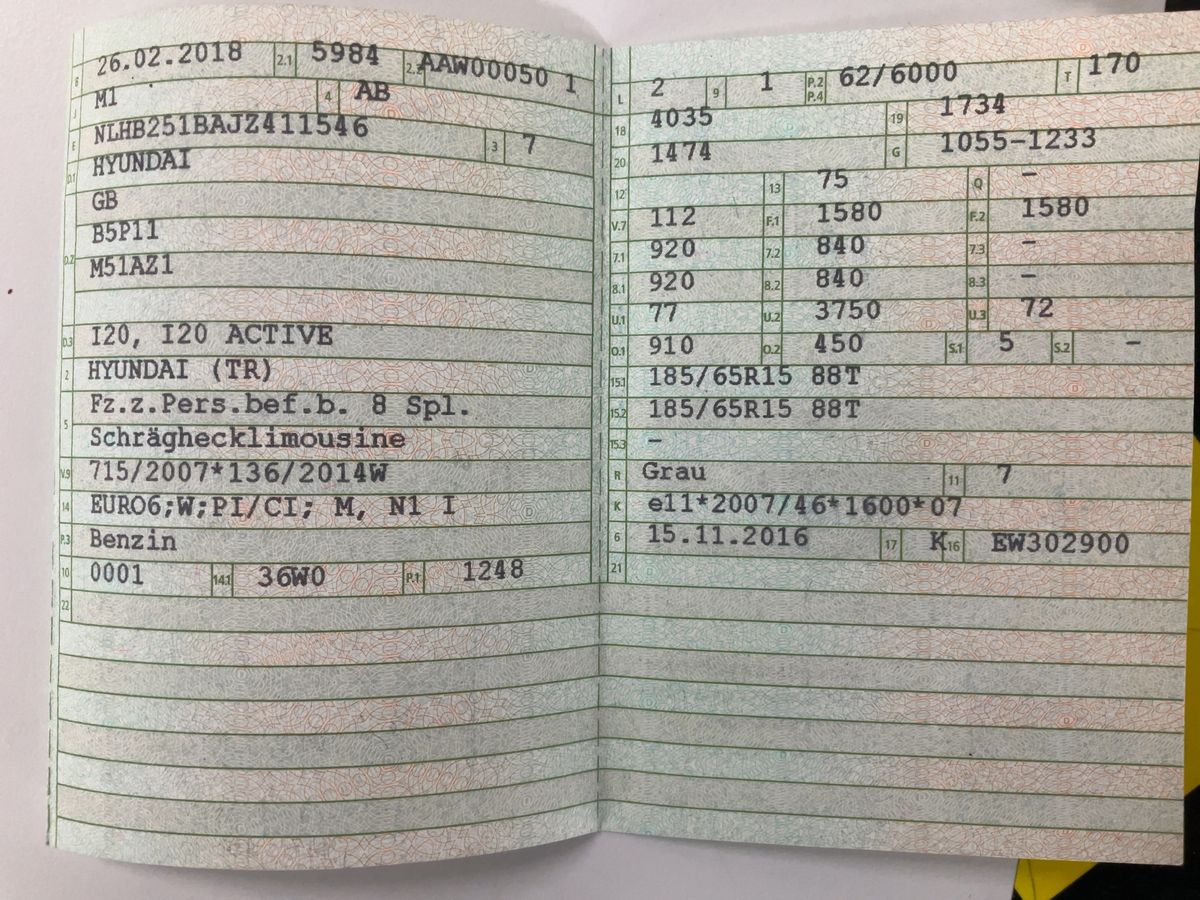 B 26.02.2018 2.1 5984 2.2 AAW00050 1
J M1 4 AB
E NLHB251BAJZ411546 3 7
D.1 HYUNDAI
GB
D.2 B5P11
M51AZ1
D.3 I20, I20 ACTIVE
2 HYUNDAI (TR)
5 Fz.z.Pers.bef.b. 8 Spl.
Schräghecklimousine
V.9 715/2007*136/2014W
14 EURO6;W;PI/CI; M, N1 I
P.3 Benzin
10 0001 14.1 36W0 P.1 1248
22
L 2 9 1 P.2 P.4 62/6000 T 170
18 4035 19 1734
20 1474 G 1055-1233
12 13 75 Q -
V.7 112 F.1 1580 F.2 1580
7.1 920 7.2 840 7.3 -
8.1 920 8.2 840 8.3 -
U.1 77 U.2 3750 U.3 72
O.1 910 O.2 450 S.1 5 S.2 -
15.1 185/65R15 88T
15.2 185/65R15 88T
15.3 -
R Grau 11 7
K e11*2007/46*1600*07
6 15.11.2016 17 K 16 EW302900
21